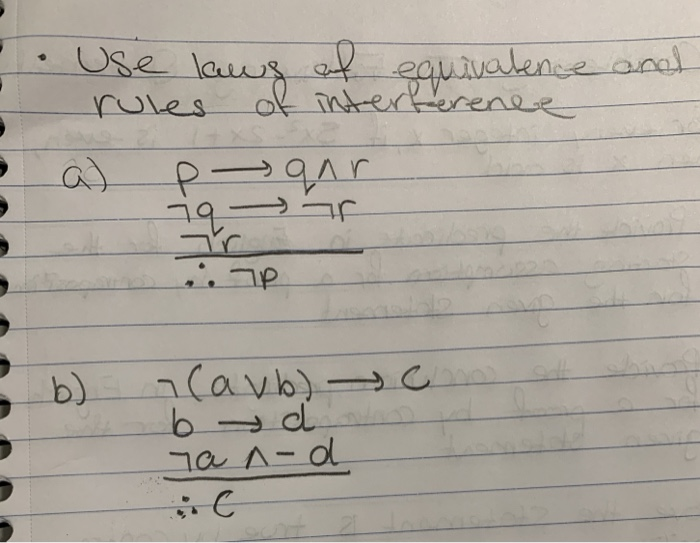 • Use laws of equivalence and
rules of interference
a) p → q ∧ r
¬q → ¬r
¬r
∴ ¬p
b) ¬(a ∨ b) → c
b → d
¬a ∧ - d
∴ c